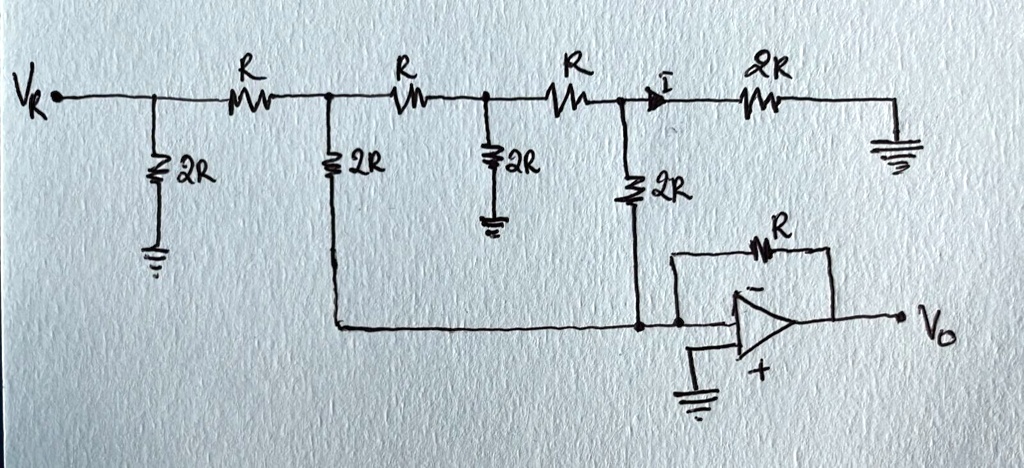 V_R R R R I 2R
2R 2R 2R 2R
R
-
+
V_0